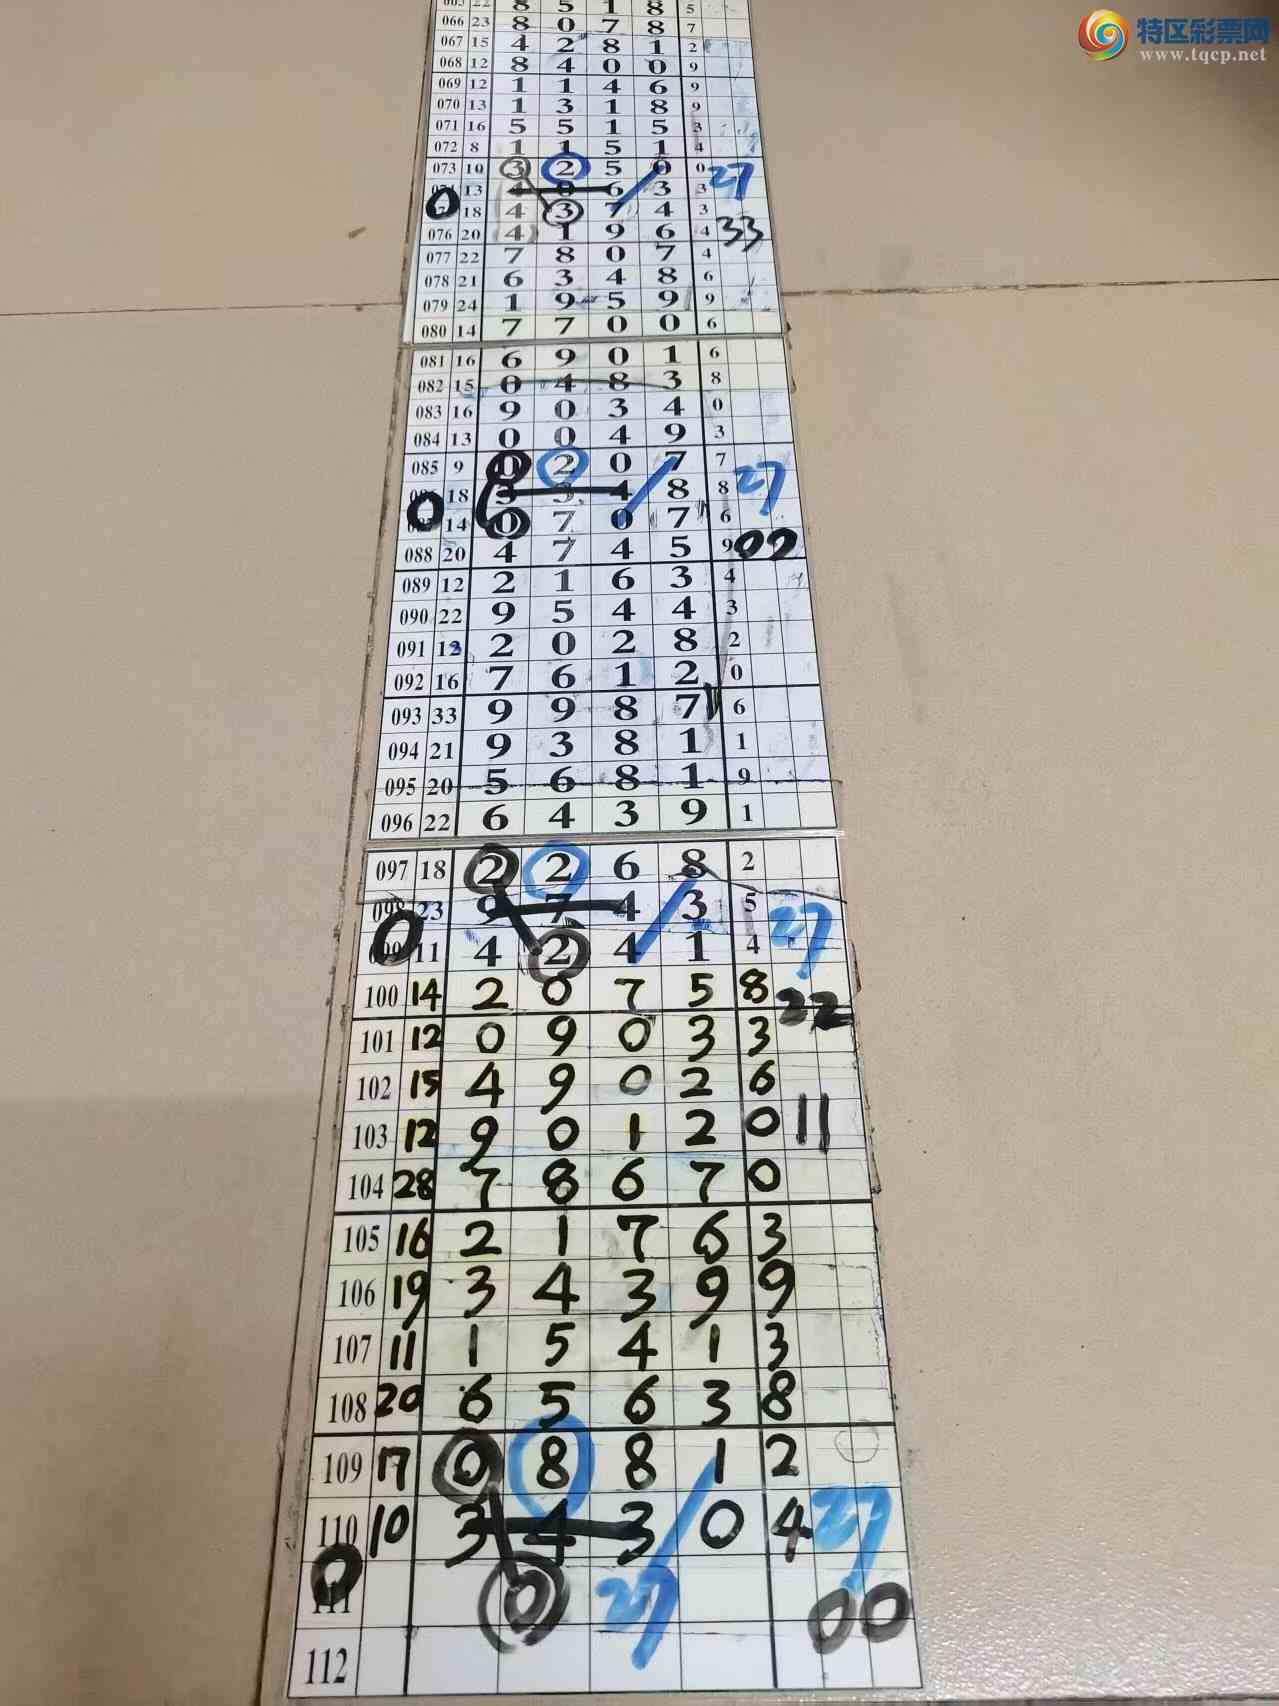 特区彩票网
www.tqcp.net
8 5 1 8 5
066 23 8 0 7 8 7
067 15 4 2 8 1 2
068 12 8 4 0 0 9
069 12 1 1 4 6 9
070 13 1 3 1 8 9
071 16 5 5 1 5 3
072 8 1 1 5 1 4
073 10 3 2 5 0 0 27
13 4 0 6 3 3
0 18 4 3 7 4 3
076 20 4 1 9 6 4 33
077 22 7 8 0 7 4
078 21 6 3 4 8 6
079 24 1 9 5 9 9
080 14 7 7 0 0 6
081 16 6 9 0 1 6
082 15 0 4 8 3 8
083 16 9 0 3 4 0
084 13 0 0 4 9 3
085 9 0 2 0 7 7 27
18 3 3 4 8 8
0 14 0 7 0 7 6
088 20 4 7 4 5 9 00
089 12 2 1 6 3 4
090 22 9 5 4 4 3
091 12 2 0 2 8 2
092 16 7 6 1 2 0
093 33 9 9 8 7 6
094 21 9 3 8 1 1
095 20 5 6 8 1 9
096 22 6 4 3 9 1
097 18 2 2 6 8 2
098 23 9 7 4 3 5 27
0 11 4 2 4 1 4
100 14 2 0 7 5 8 22
101 12 0 9 0 3 3
102 15 4 9 0 2 6
103 12 9 0 1 2 0 11
104 28 7 8 6 7 0
105 16 2 1 7 6 3
106 19 3 4 3 9 9
107 11 1 5 4 1 3
108 20 6 5 6 3 8
109 17 0 8 8 1 2
110 10 3 4 3 0 4 27
0 111 0 27 00
112